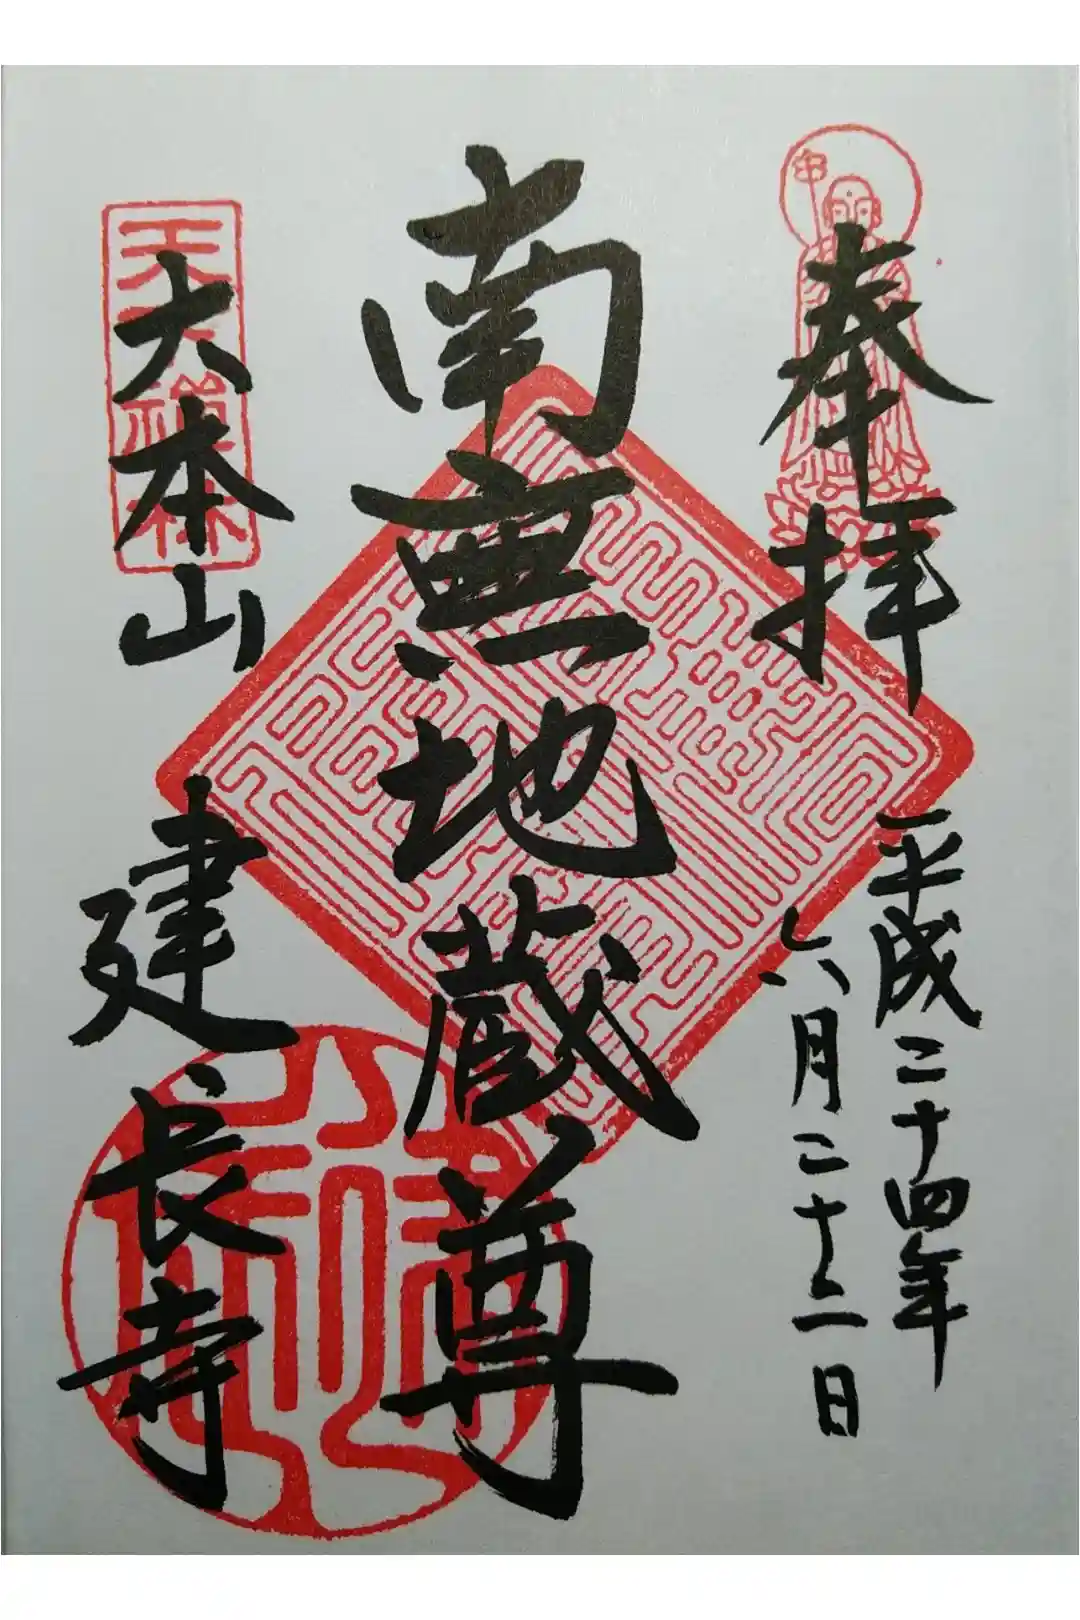 奉拝
平成二十四年
六月二十二日
南無地蔵尊
大本山
建長寺
天下禅林